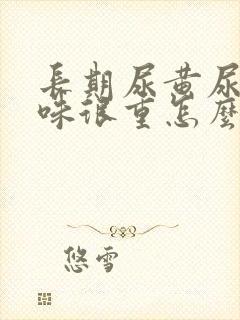 長期尿黃尿
味很重怎麼
悠雪